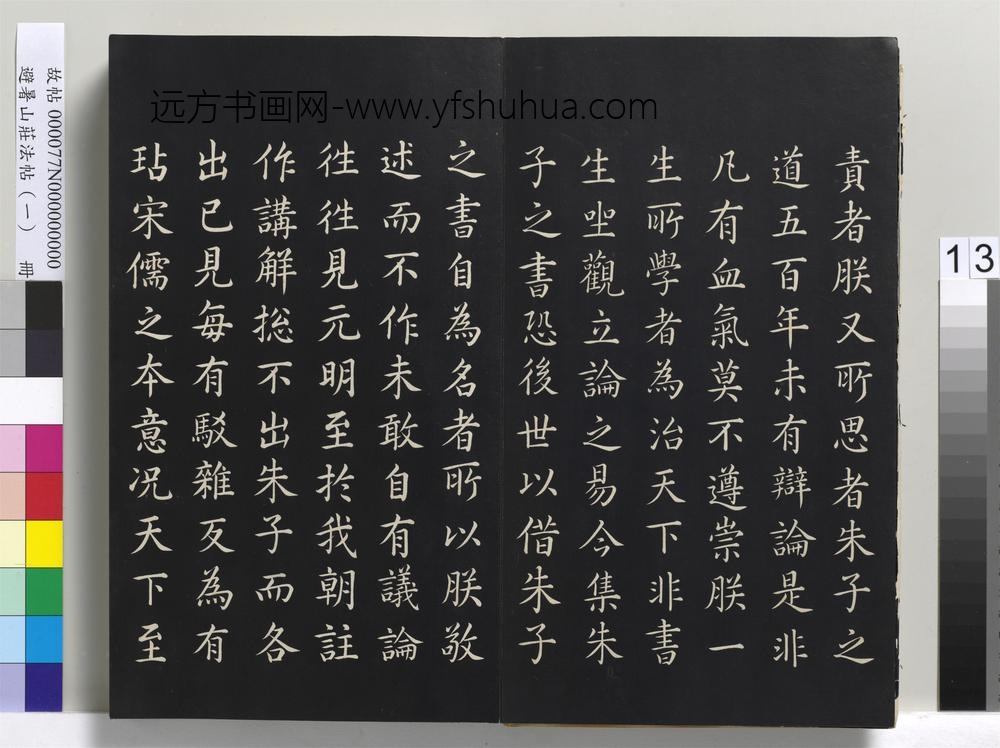 責者朕又所思者朱子之
道五百年未有辯論是非
凡有血氣莫不遵崇朕一
生所學者為治天下非書
生坐觀立論之易今集朱
子之書恐後世以借朱子
之書自為名者所以朕敬
述而不作未敢自有議論
往往見元明至於我朝註
作講解總不出朱子而各
出已見每有駁雜反為有
玷宋儒之本意况天下至
远方书画网-www.yfshuhua.com
故帖000077N000000000
避暑山莊法帖(一) 冊
13